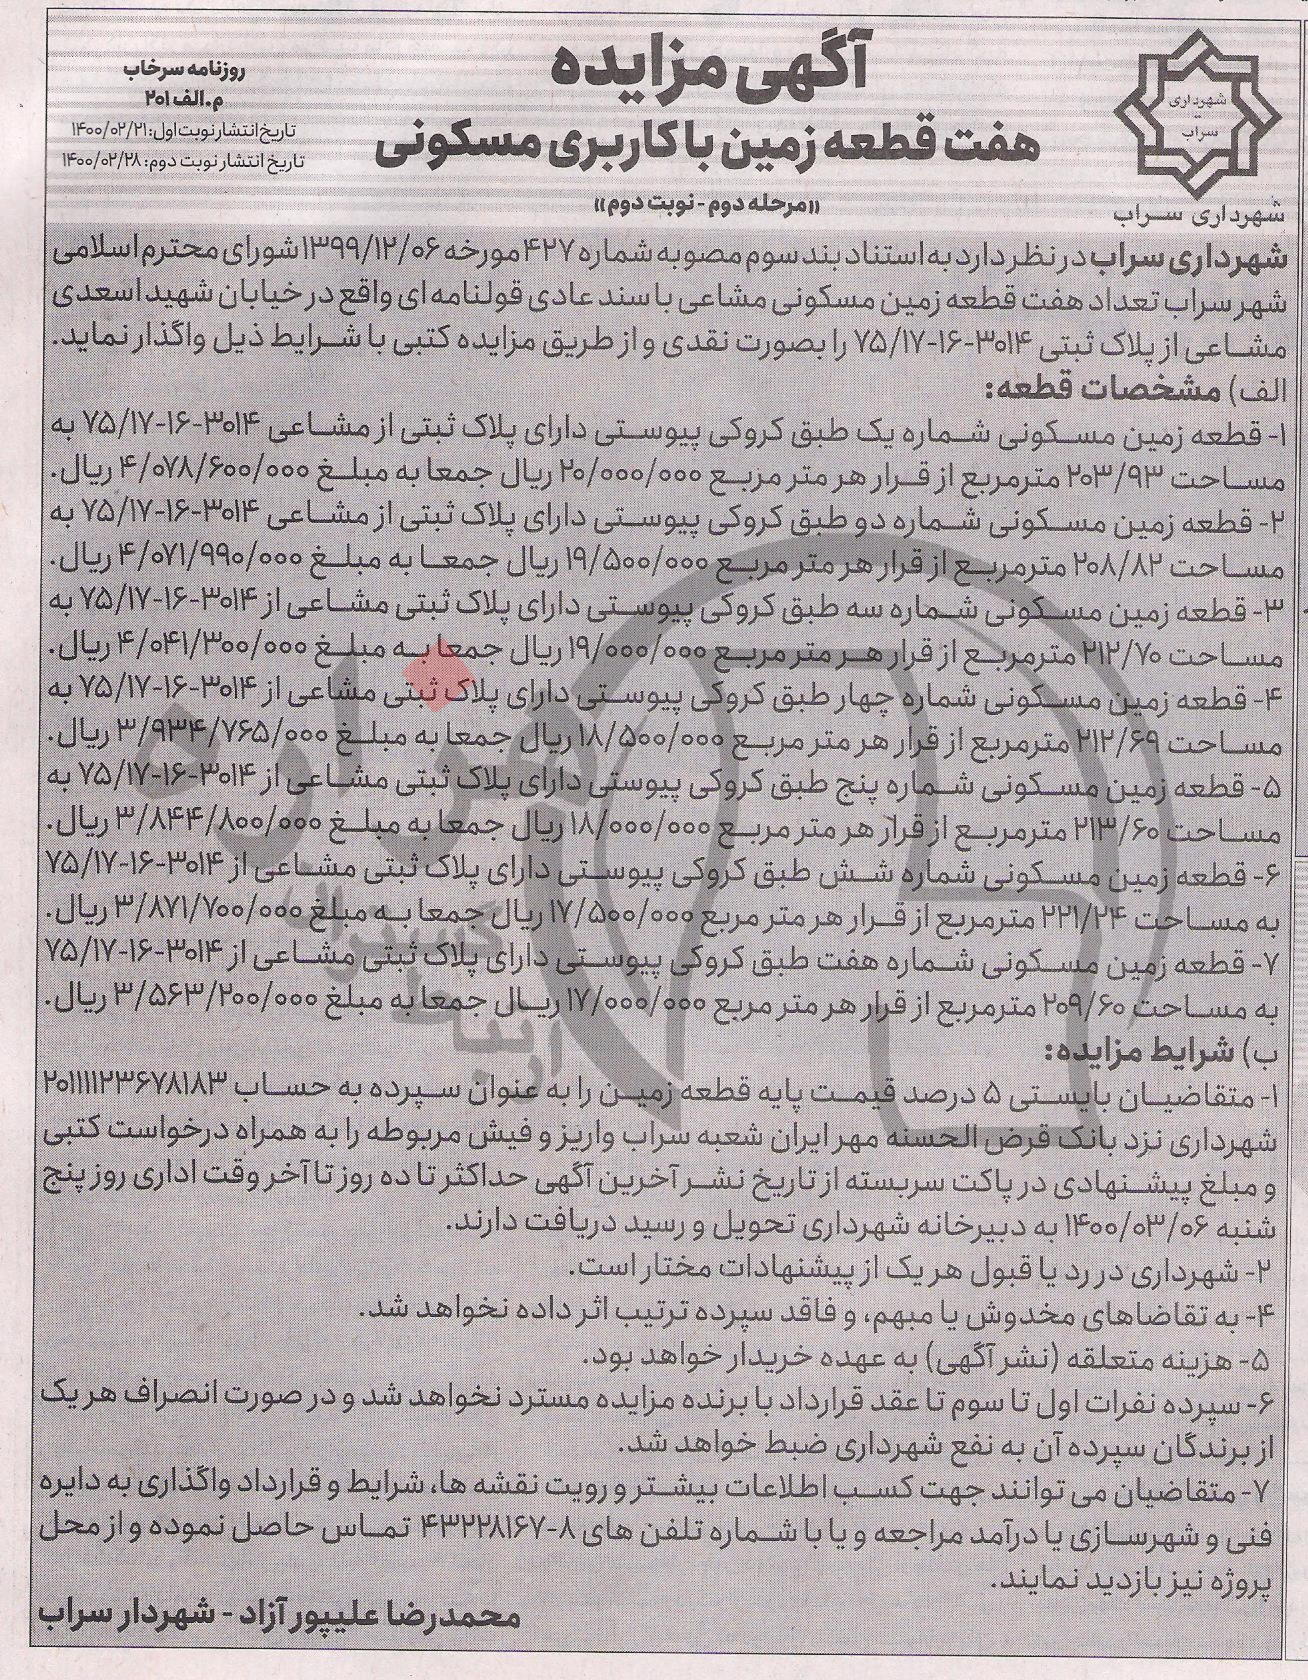 آگهی مزایده
هفت قطعه زمین با کاربری مسکونی
«مرحله دوم - نوبت دوم»
شهرداری
سراب
شهرداری سراب
روزنامه سرخاب
م.الف ۲۰۱
تاریخ انتشار نوبت اول: ۱۴۰۰/۰۲/۲۱
تاریخ انتشار نوبت دوم: ۱۴۰۰/۰۲/۲۸
شهرداری سراب در نظر دارد به استناد بند سوم مصوبه شماره ۴۲۷ مورخه ۱۳۹۹/۱۲/۰۶ شورای محترم اسلامی
شهر سراب تعداد هفت قطعه زمین مسکونی مشاعی با سند عادی قولنامه ای واقع در خیابان شهید اسعدی
مشاعی از پلاک ثبتی ۳۰۱۴-۱۶-۷۵/۱۷ را بصورت نقدی و از طریق مزایده کتبی با شرایط ذیل واگذار نماید.
الف) مشخصات قطعه:
۱- قطعه زمین مسکونی شماره یک طبق کروکی پیوستی دارای پلاک ثبتی از مشاعی ۳۰۱۴-۱۶-۷۵/۱۷ به
مساحت ۲۰۳/۹۳ مترمربع از قرار هر متر مربع ۲۰/۰۰۰/۰۰۰ ریال جمعا به مبلغ ۴/۰۷۸/۶۰۰/۰۰۰ ریال.
۲- قطعه زمین مسکونی شماره دو طبق کروکی پیوستی دارای پلاک ثبتی از مشاعی ۳۰۱۴-۱۶-۷۵/۱۷ به
مساحت ۲۰۸/۸۲ مترمربع از قرار هر متر مربع ۱۹/۵۰۰/۰۰۰ ریال جمعا به مبلغ ۴/۰۷۱/۹۹۰/۰۰۰ ریال.
۳- قطعه زمین مسکونی شماره سه طبق کروکی پیوستی دارای پلاک ثبتی مشاعی از ۳۰۱۴-۱۶-۷۵/۱۷ به
مساحت ۲۱۲/۷۰ مترمربع از قرار هر متر مربع ۱۹/۰۰۰/۰۰۰ ریال جمعا به مبلغ ۴/۰۴۱/۳۰۰/۰۰۰ ریال.
۴- قطعه زمین مسکونی شماره چهار طبق کروکی پیوستی دارای پلاک ثبتی مشاعی از ۳۰۱۴-۱۶-۷۵/۱۷ به
مساحت ۲۱۲/۶۹ مترمربع از قرار هر متر مربع ۱۸/۵۰۰/۰۰۰ ریال جمعا به مبلغ ۳/۹۳۴/۷۶۵/۰۰۰ ریال.
۵- قطعه زمین مسکونی شماره پنج طبق کروکی پیوستی دارای پلاک ثبتی مشاعی از ۳۰۱۴-۱۶-۷۵/۱۷ به
مساحت ۲۱۳/۶۰ مترمربع از قرار هر متر مربع ۱۸/۰۰۰/۰۰۰ ریال جمعا به مبلغ ۳/۸۴۴/۸۰۰/۰۰۰ ریال.
۶- قطعه زمین مسکونی شماره شش طبق کروکی پیوستی دارای پلاک ثبتی مشاعی از ۳۰۱۴-۱۶-۷۵/۱۷
به مساحت ۲۲۱/۲۴ مترمربع از قرار هر متر مربع ۱۷/۵۰۰/۰۰۰ ریال جمعا به مبلغ ۳/۸۷۱/۷۰۰/۰۰۰ ریال.
۷- قطعه زمین مسکونی شماره هفت طبق کروکی پیوستی دارای پلاک ثبتی مشاعی از ۳۰۱۴-۱۶-۷۵/۱۷
به مساحت ۲۰۹/۶۰ مترمربع از قرار هر متر مربع ۱۷/۰۰۰/۰۰۰ ریال جمعا به مبلغ ۳/۵۶۳/۲۰۰/۰۰۰ ریال.
ب) شرایط مزایده:
۱- متقاضیان بایستی ۵ درصد قیمت پایه قطعه زمین را به عنوان سپرده به حساب ۲۰۱۱۱۱۲۳۶۷۸۱۸۳
شهرداری نزد بانک قرض الحسنه مهر ایران شعبه سراب واریز و فیش مربوطه را به همراه درخواست کتبی
و مبلغ پیشنهادی در پاکت سربسته از تاریخ نشر آخرین آگهی حداکثر تا ده روز تا آخر وقت اداری روز پنج
شنبه ۱۴۰۰/۰۳/۰۶ به دبیرخانه شهرداری تحویل و رسید دریافت دارند.
۲- شهرداری در رد یا قبول هر یک از پیشنهادات مختار است.
۴- به تقاضاهای مخدوش یا مبهم، و فاقد سپرده ترتیب اثر داده نخواهد شد.
۵- هزینه متعلقه (نشر آگهی) به عهده خریدار خواهد بود.
۶- سپرده نفرات اول تا سوم تا عقد قرارداد با برنده مزایده مسترد نخواهد شد و در صورت انصراف هر یک
از برندگان سپرده آن به نفع شهرداری ضبط خواهد شد.
۷- متقاضیان می توانند جهت کسب اطلاعات بیشتر و رویت نقشه ها، شرایط و قرارداد واگذاری به دایره
فنی و شهرسازی یا درآمد مراجعه و یا با شماره تلفن های ۸-۴۳۲۲۸۱۶۷ تماس حاصل نموده و از محل
پروژه نیز بازدید نمایند.
محمدرضا علیپور آزاد - شهردار سراب